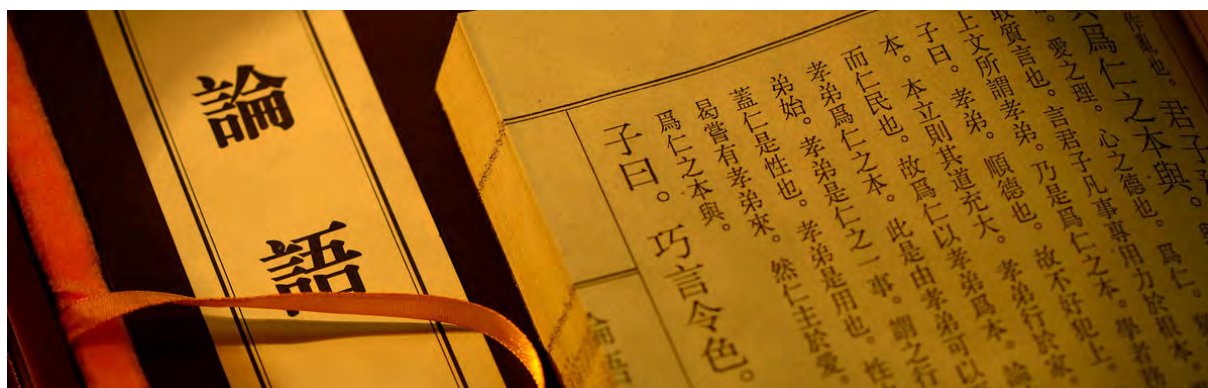 作亂也。君子
爲仁之本與。
愛之理。心之德也。爲仁。
質言也。言君子凡事專用力於根本。
上文所謂孝弟。乃是爲仁之本。學者
子曰。孝弟。順德也。故不好犯上。
本。本立則其道充大。孝弟行於家
而仁民也。故爲仁以孝弟爲本。論
孝弟爲仁之本。此是由孝弟可以
弟始。孝弟是仁之一事。謂之行
蓋仁是性也。孝弟是用也。性
曷嘗有孝弟來。然仁主於愛。
爲仁之本與。
子曰。巧言令色。
論語
論語